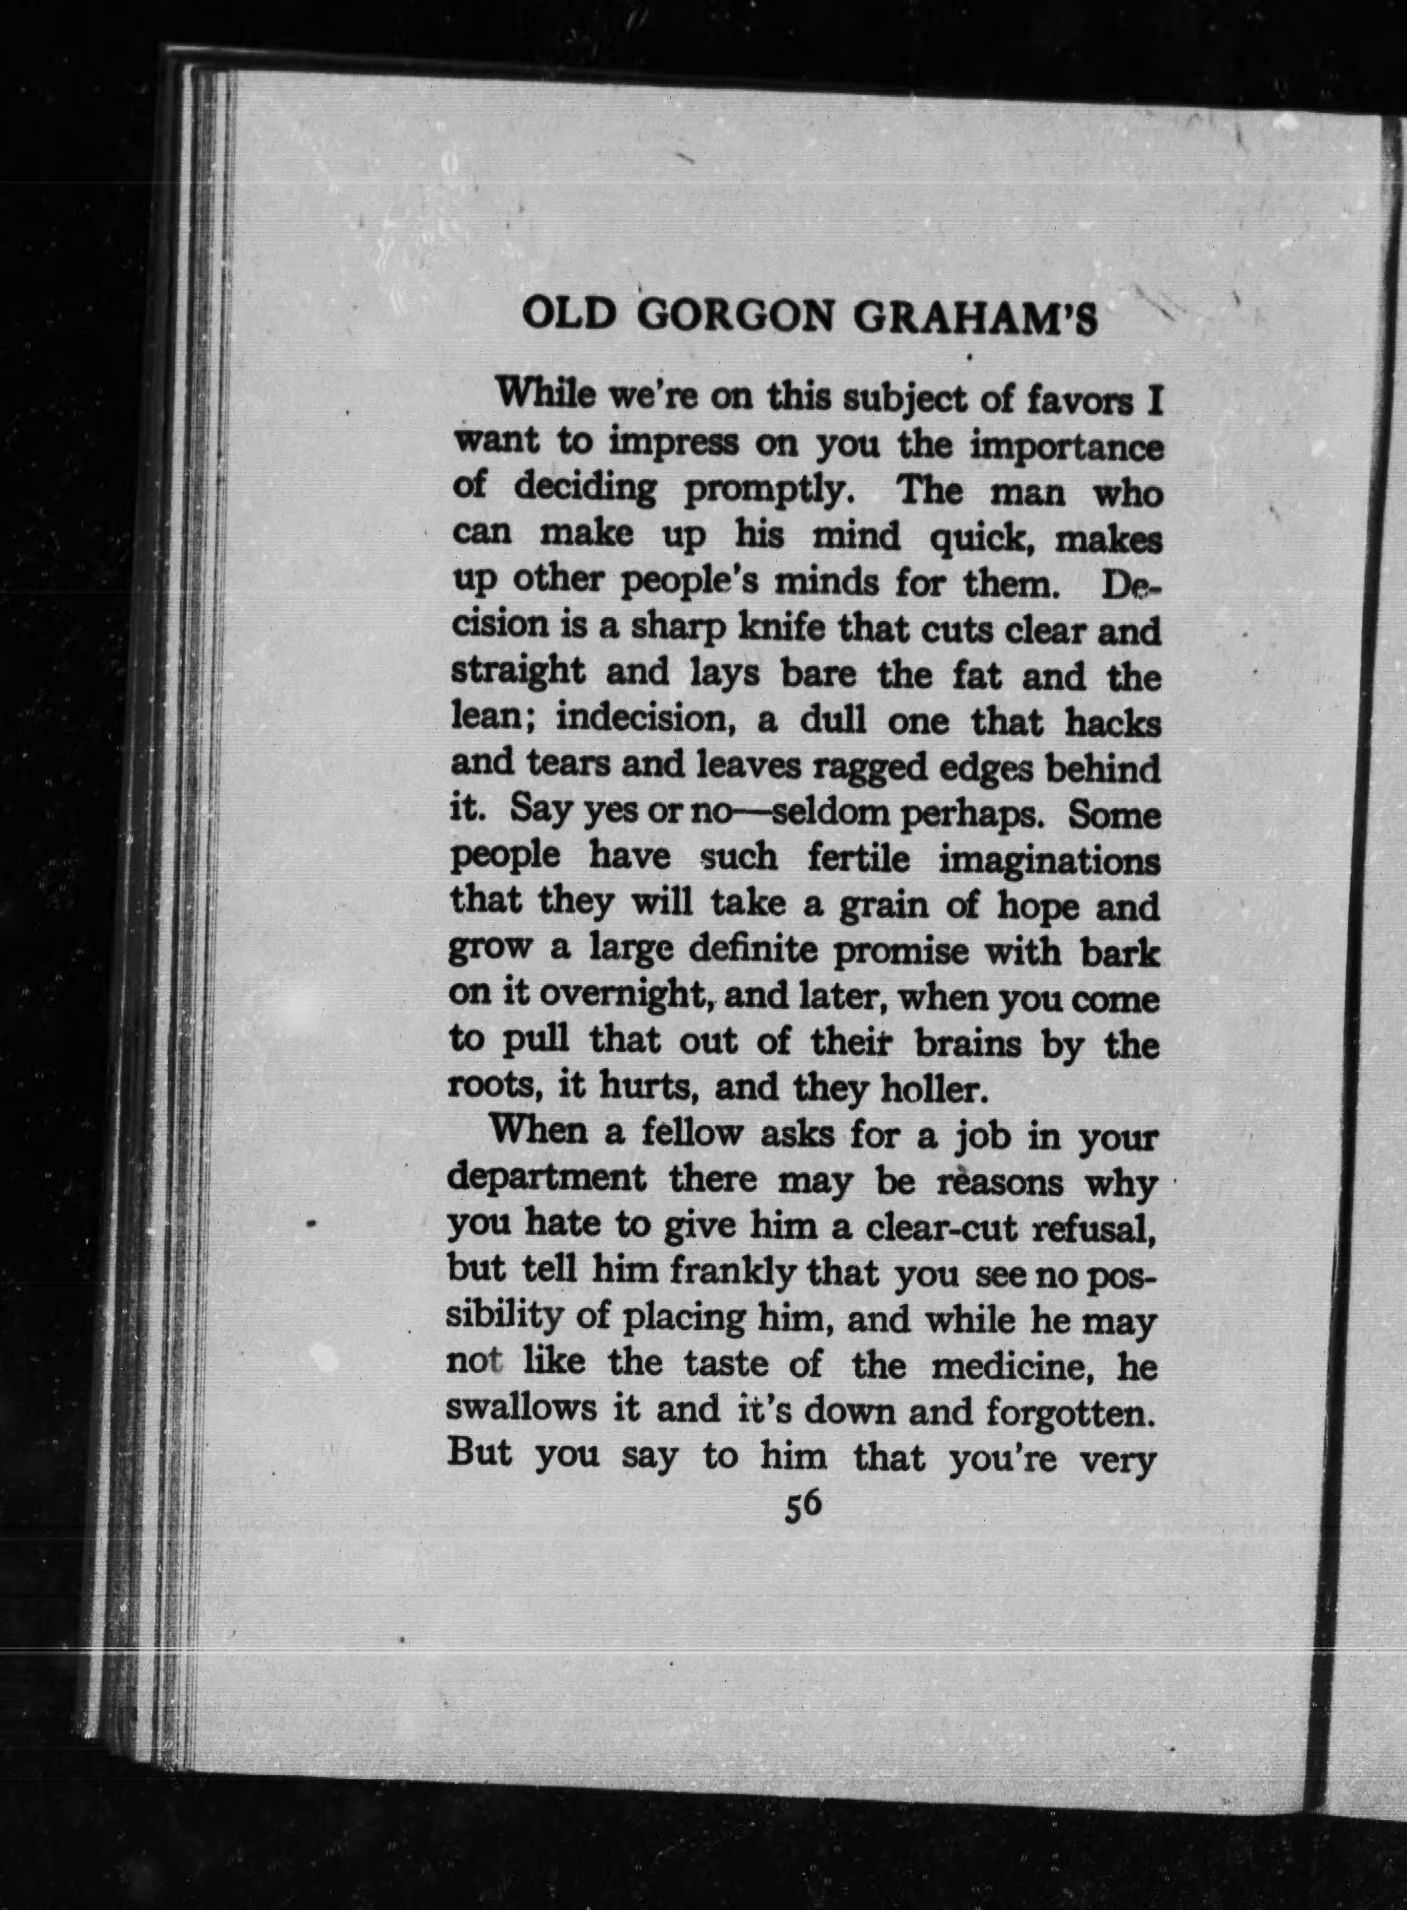 OLD GORGON GRAHAM'S
While we're on this subject of favors I
want to impress on you the importance
of deciding promptly. The man who
can make up his mind quick, makes
up other people's minds for them. De-
cision is a sharp knife that cuts clear and
straight and lays bare the fat and the
lean; indecision, a dull one that hacks
and tears and leaves ragged edges behind
it. Say yes or no—seldom perhaps. Some
people have such fertile imaginations
that they will take a grain of hope and
grow a large definite promise with bark
on it overnight, and later, when you come
to pull that out of their brains by the
roots, it hurts, and they holler.
When a fellow asks for a job in your
department there may be reasons why
you hate to give him a clear-cut refusal,
but tell him frankly that you see no pos-
sibility of placing him, and while he may
not like the taste of the medicine, he
swallows it and it's down and forgotten.
But you say to him that you're very
56